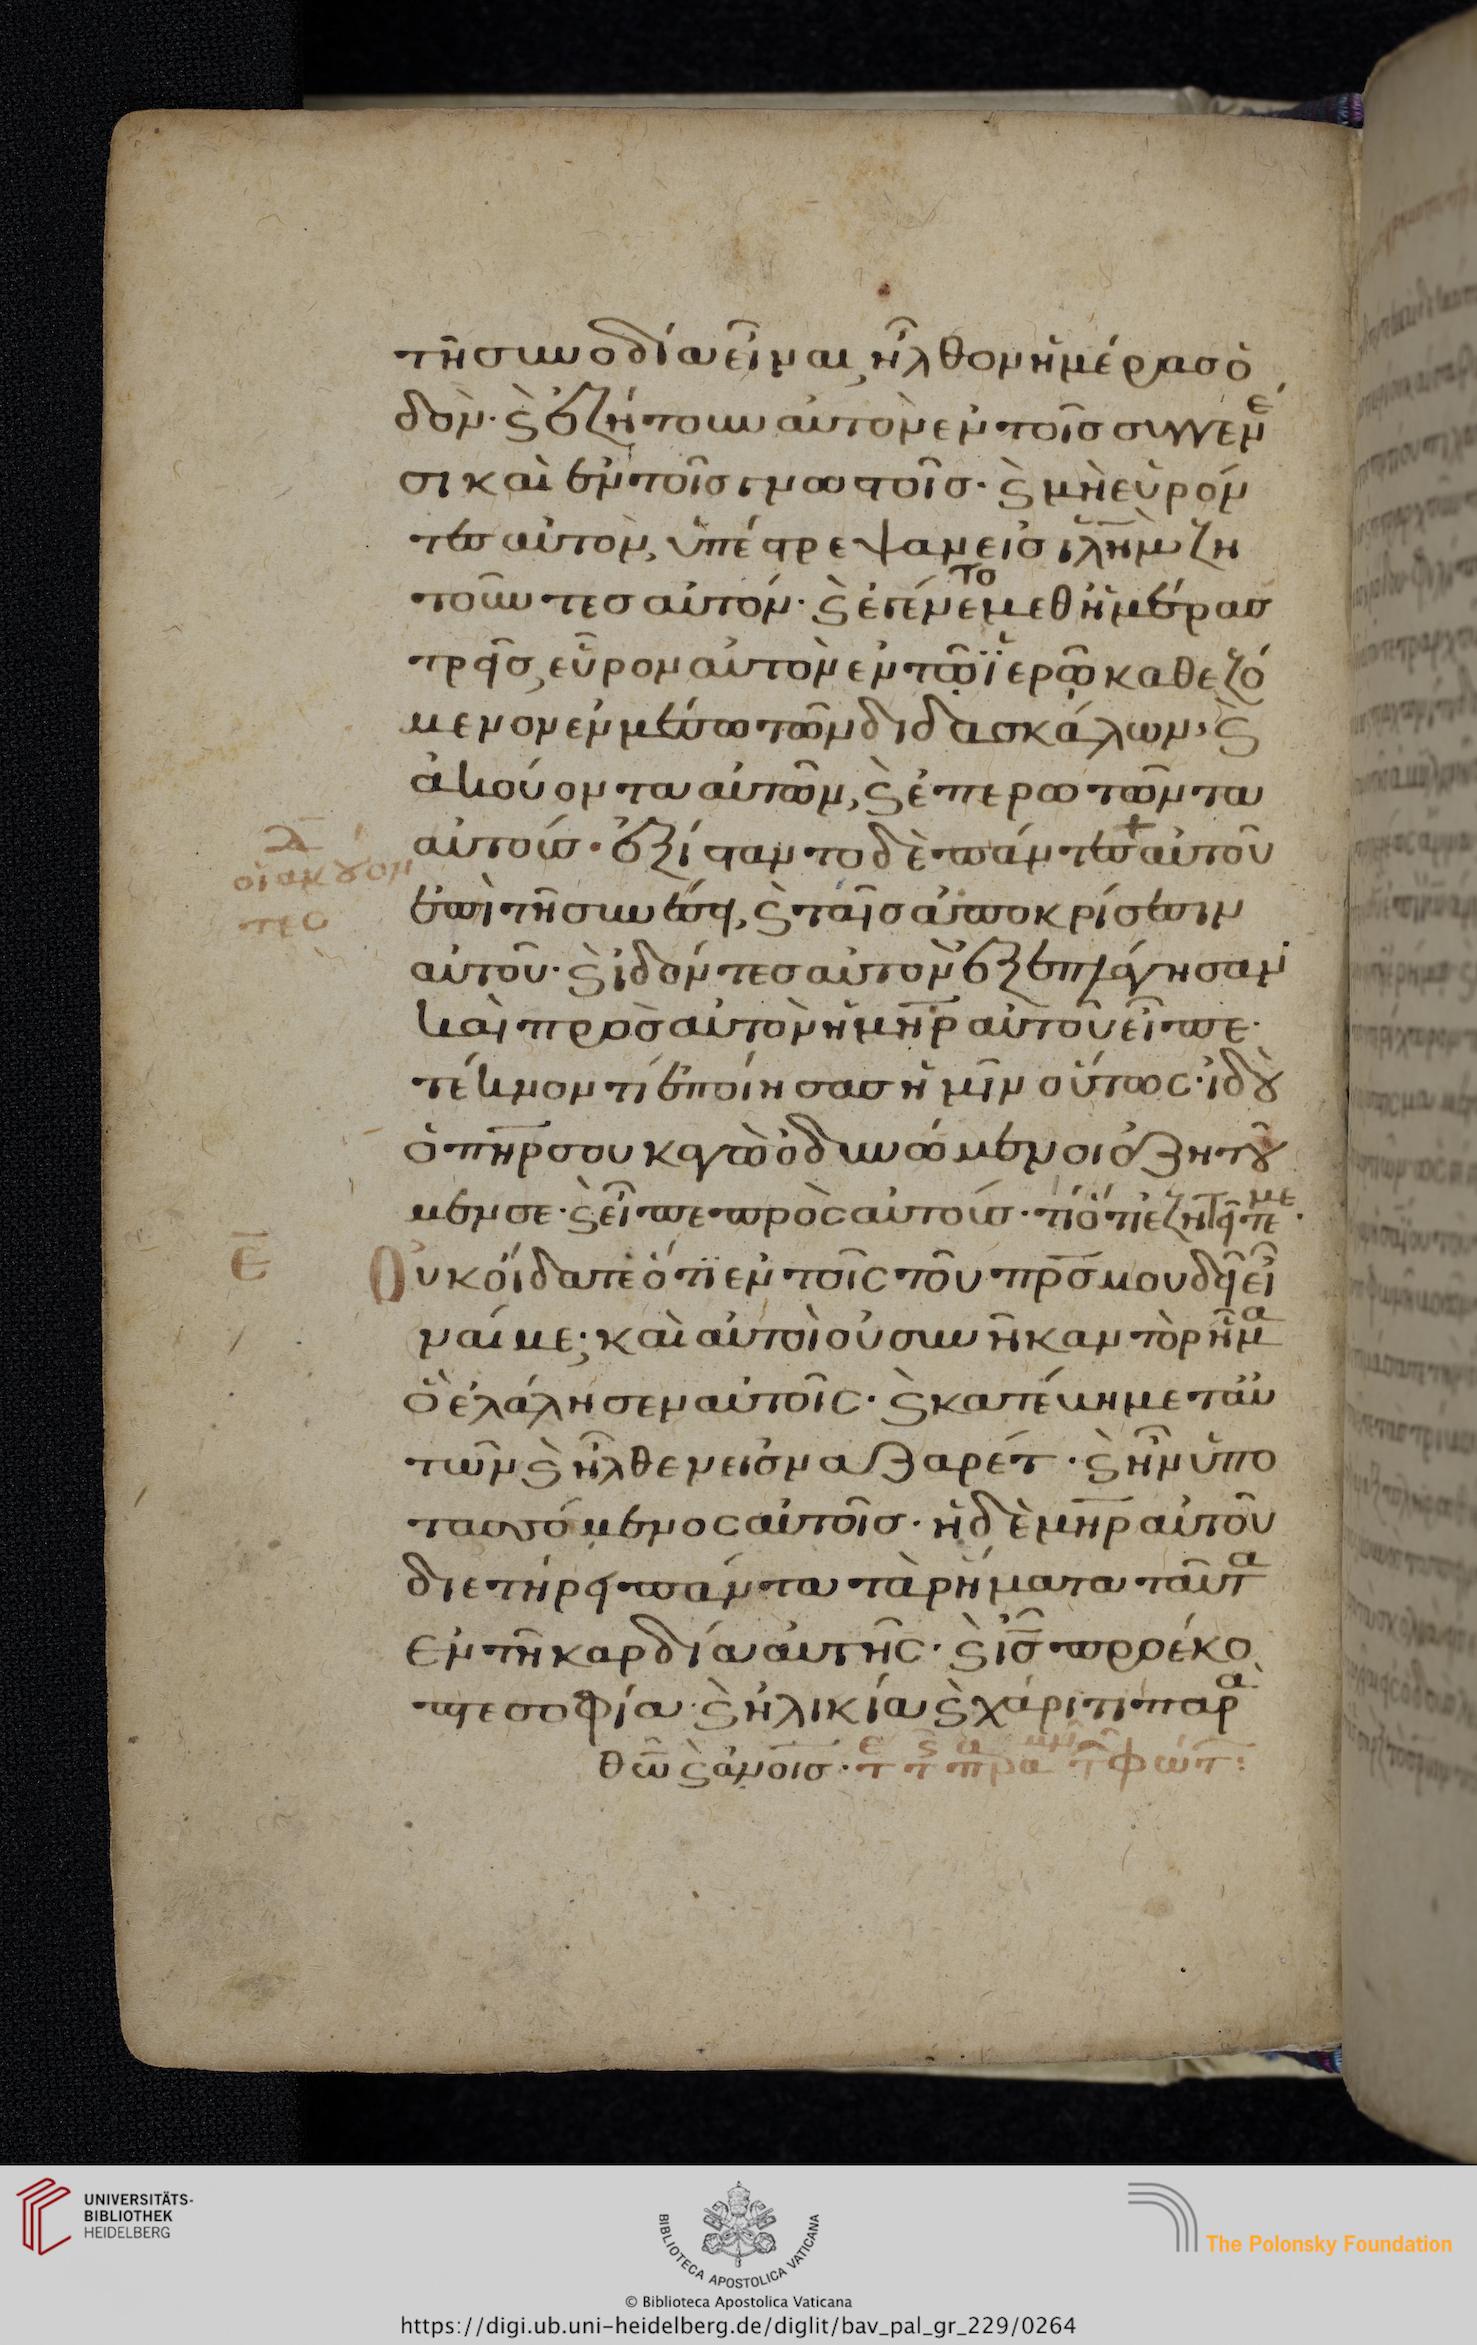 τῆ συνοδία εἶναι, ἦλθον ἡμέρας ὁ
δὸν· ϗ ἐζήτουν αὐτὸν ἐν τοῖς συγγενέ
σι καὶ ἐν τοῖς γνωστοῖς· ϗ μὴ εὑρόν
τες αὐτὸν, ὑπέστρεψαν εἰς ἱλῆμ ζη
τοῦντες αὐτόν· ϗ ἐγένετο μεθ ἡμέρας
τρεῖς, εὗρον αὐτὸν ἐν τῶ ϊερῶ καθεζό
μενον ἐν μέσω τῶν διδασκάλων, ϗ
ἀκούοντα αὐτῶν, ϗ ἐπερωτῶντα
αὐτούς· ἐξίσταντο δὲ πάντες αὐτοῦ
ἐπὶ τῆ συνέσει, ϗ ταῖς ἀποκρίσεσιν
αὐτοῦ· ϗ ἰδόντες αὐτὸν ἐξεπλάγησαν·
καὶ πρὸς αὐτὸν ἡ μηρ αὐτοῦ εἶπε·
τέκνον τί ἐποίησας ἡμῖν οὕτως· ἰδοὺ
ὁ πηρ σου κἀγὼ ὀδυνώμενοι ἐζητοῦ
μέν σε· ϗ εἶπε πρὸς αὐτούς· τί ὅτι ἐζητεῖτέ με·
Οὐκ οἴδατε ὅτι ἐν τοῖς τοῦ πρς μου δεῖ εἶ
ναί με; καὶ αὐτοὶ οὐ συνῆκαν τὸ ρῆμα
ὃ ἐλάλησεν αὐτοῖς· ϗ κατέβη μετ αὐ
τῶν ϗ ἦλθεν εἰς ναζαρέτ· ϗ ἦν ὑπο
τασσόμενος αὐτοῖς· ἡ δὲ μηρ αὐτοῦ
διετήρει πάντα τὰ ρήματα ταῦτα
ἐν τῆ καρδία αὐτῆς· ϗ ις προέκο
πτε σοφία ϗ ἡλικία ϗ χάριτι παρὰ
θῶ ϗ ανοις·
λ
οἱ ἀκούον
τες
ε
UNIVERSITÄTS-
BIBLIOTHEK
HEIDELBERG
BIBLIOTECA APOSTOLICA VATICANA
The Polonsky Foundation
© Biblioteca Apostolica Vaticana
https://digi.ub.uni-heidelberg.de/diglit/bav_pal_gr_229/0264